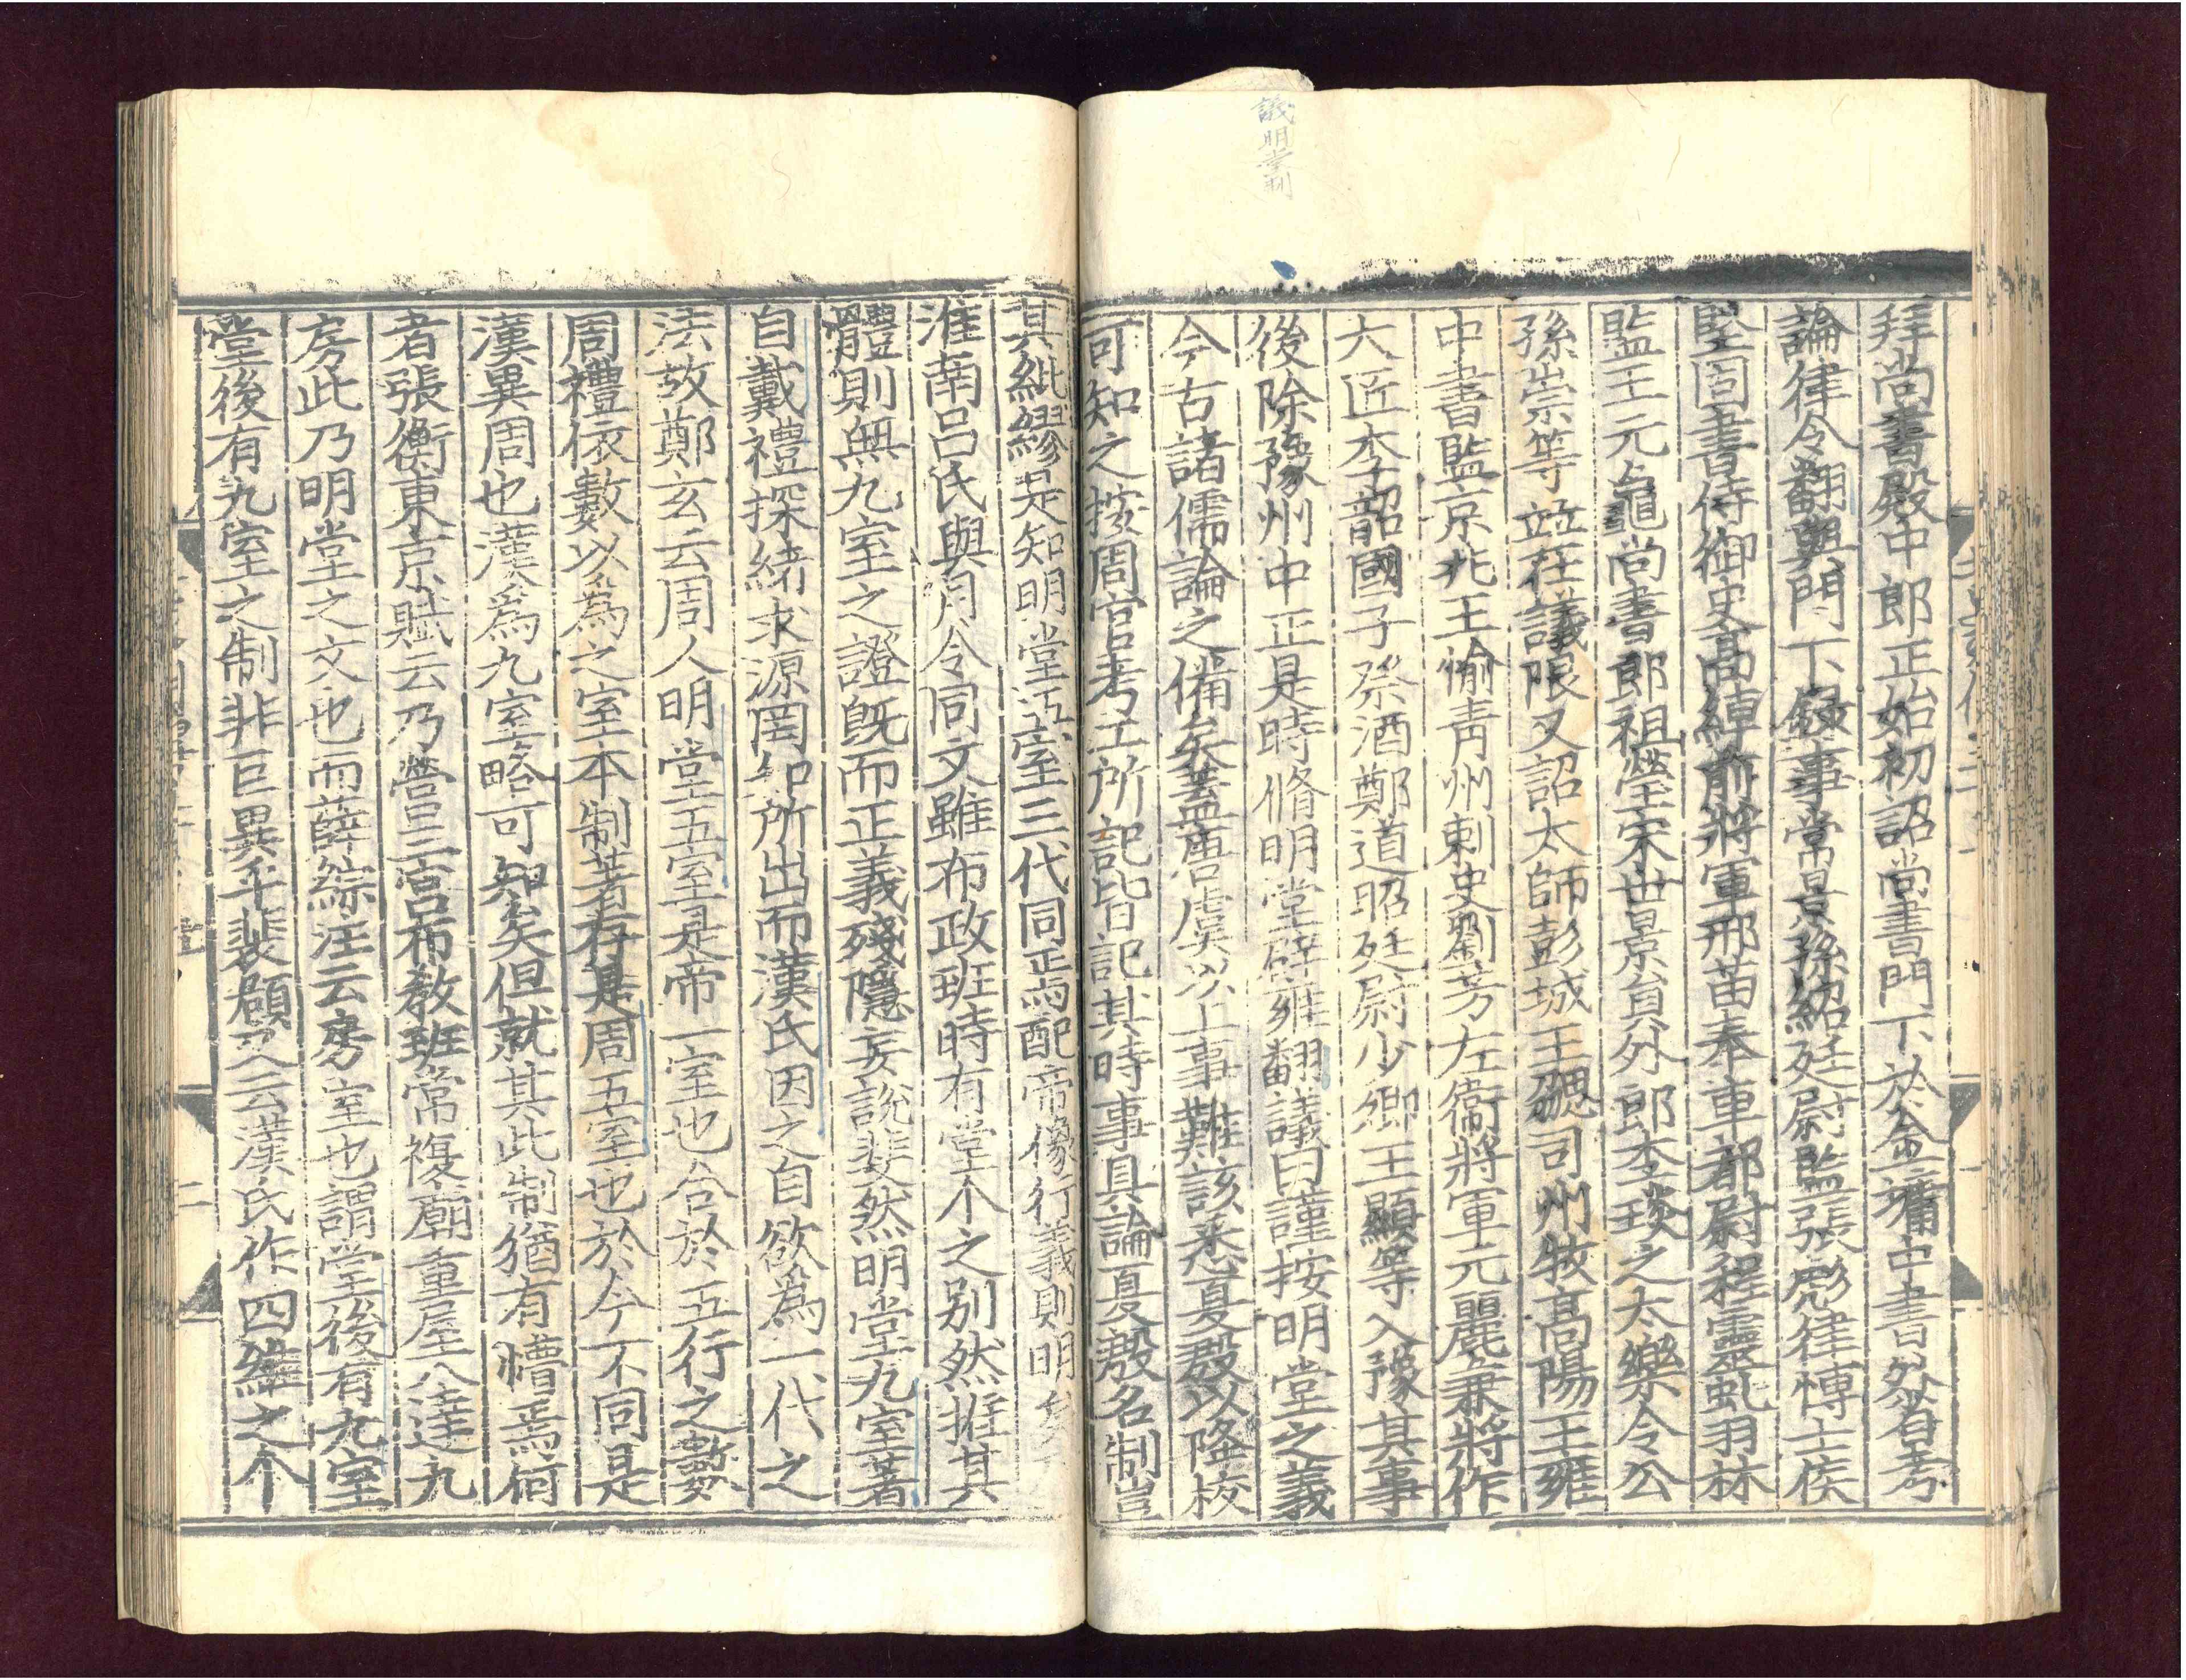 議明堂制
拜尚書殿中郎正始初詔尚書門下於金墉中書外省考
論律令翻與門下錄事常景孫紹廷尉監張彪律博士侯
堅固書侍御史高綽前將軍邢苗奉車都尉程靈虬羽林
監王元龜尚書郎祖瑩宋世景貟外郎李琰之太樂令公
孫崇等竝在議限又詔太師彭城王勰司州牧髙陽王雍
中書監京兆王愉青州刺史劉芳左衞將軍元麗兼將作
大匠李韶國子祭酒鄭道昭廷尉少卿王顯等入豫其事
後除豫州中正是時脩明堂辟雍翻議曰謹按明堂之義
今古諸儒論之備矣蓋唐虞以上事難該悉夏殷以降校
可知之按周官考工所記皆記其時事具論夏殷名制豈
其紕繆是知明堂五室三代同焉配帝像行義則明矣
淮南呂氏與月令同文雖布政班時有堂个之別然推其
體則無九室之證旣而正義殘隱妄說斐然明堂九室著
自戴禮探緒求源罔知所出而漢氏因之自欲爲一代之
法故鄭玄云周人明堂五室是帝一室也合於五行之數
周禮依數以爲之室本制著存是周五室也於今不同是
漢異周也漢爲九室略可知矣但就其此制猶有懵焉何
者張衡東京賦云乃營三宫布教班常複廟重屋八達九
房此乃明堂之文也而薛綜注云房室也謂堂後有九室
堂後有九室之制非巨異乎裴頠又云漢氏作四維之个